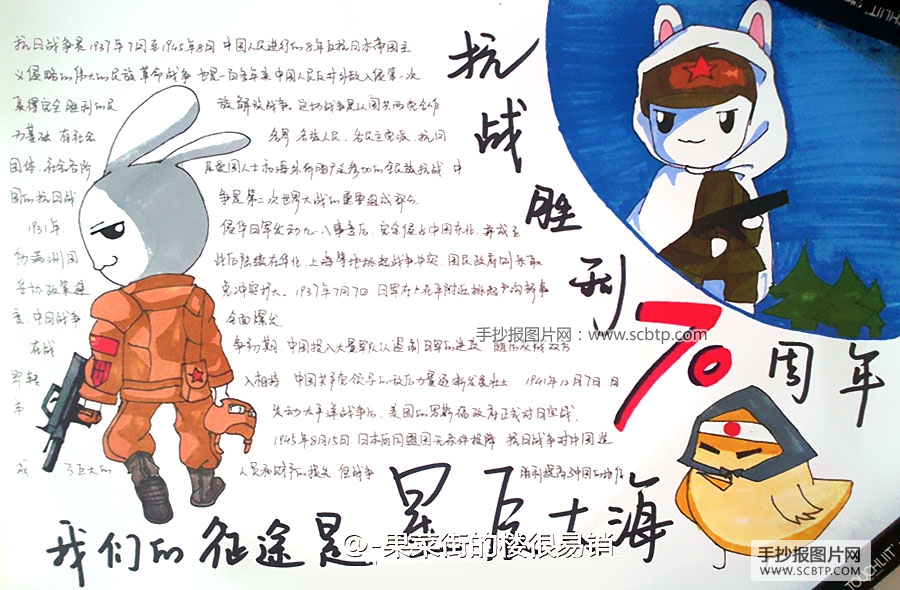 抗战胜利70周年
抗日战争是1937年7月至1945年8月 中国人民进行的8年反抗日本帝国主
义侵略的伟大的民族革命战争 也是一百多年来中国人民反对外敌入侵第一次
取得完全胜利的民 族解放战争. 这场战争是以国共两党合作
为基础 有社会 各界、各族人民、各民主党派、抗日
团体、社会各阶 层爱国人士和海外侨胞广泛参加的全民族抗战 中
国的抗日战 争是第二次世界大战的重要组成部分.
1931年 侵华日军发动九一八事变后, 完全侵占中国东北, 并成立
伪满洲国 此后陆续在华北、上海等地挑起战争冲突, 国民政府则采取
妥协政策避 免冲突扩大. 1937年7月7日 日军在 附近挑起
变, 中国战争 全面爆发
在战 争初期 中国投入大量军队以遏制日军的进攻 随后
即转 入相持 中国共产党领导的敌后力量逐渐发展壮 1941年12月7日 日
军 发动太平洋战争后, 美国的罗斯福政府正式对日宣战.
1945年8月15日 日本向同盟国无条件投降 抗日战争对中国造
成 了巨大的 人员和 的损失 但战争 胜利提高了中国的地位
我们的征途是星辰大海
手抄报图片网：www.scbtp.com
@-果菜街的楼很易销
手抄报图片网
WWW.SCBTP.COM
TOUCHLIIT
TOUCHLIIT